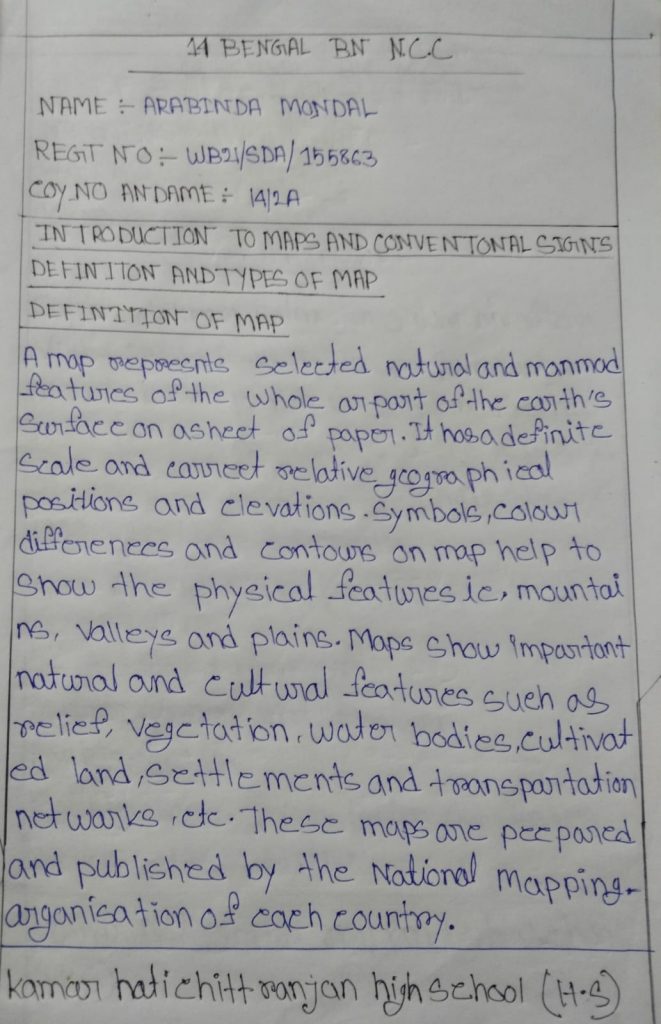 14 BENGAL BN N.C.C
NAME :- ARABINDA MONDAL
REGT NO :- WB21/SDA/155863
COY.NO ANDAME :- 14/2A
INTRODUCTION TO MAPS AND CONVENTONAL SIGNS
DEFINITION AND TYPES OF MAP
DEFINITION OF MAP
A map repreesnts selected natural and manmad
features of the whole or part of the earth's
surface on a sheet of paper. It has a definite
scale and correct relative geographical
positions and elevations. Symbols, colour
differences and contours on map help to
show the physical features ie, mountai
ns, valleys and plains. Maps show important
natural and cultural features such as
relief, vegetation, water bodies, cultivat
ed land, settlements and transpartation
net warks, etc. These maps are peepared
and published by the National mapping-
arganisation of each country.
kamar hati chitt ranjan high school (H.S)